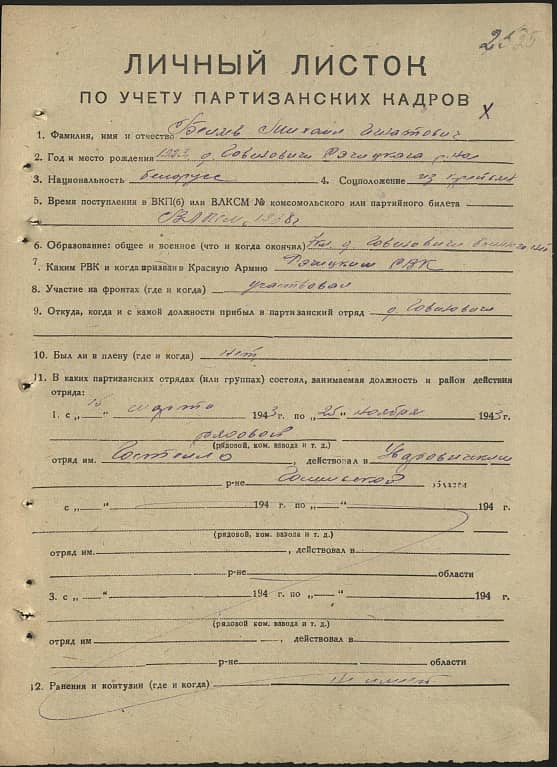 25
ЛИЧНЫЙ ЛИСТОК
ПО УЧЕТУ ПАРТИЗАНСКИХ КАДРОВ
X
1. Фамилия, имя и отчество Беляев Михаил Игнатович
2. Год и место рождения 1923 д. Говиновичи Речицкого р-на
3. Национальность белорусс 4. Соцположение из крестьян
5. Время поступления в ВКП(б) или ВЛКСМ № комсомольского или партийного билета
ВЛКСМ, 1938 г
6. Образование: общее и военное (что и когда окончил) 7 кл. д.
7. Каким РВК и когда призван в Красную Армию Речицким РВК
8. Участие на фронтах (где и когда) участвовал
9. Откуда, когда и с какой должности прибыл в партизанский отряд д.
10. Был ли в плену (где и когда) нет
11. В каких партизанских отрядах (или группах) состоял, занимаемая должность и район действия
отряда:
1. с „15“ марта 1943 г. по „25“ ноября 1943 г.
рядовой
(рядовой, ком. взвода и т. д.)
отряд им. Гостелло, действовал в
р-не Гомельской области
с „—“ 194 г. по „—“ 194 г.
(рядовой, ком. взвода и т. д.)
отряд им. , действовал в
р-не области
3. с „—“ 194 г. по „—“ 194 г.
(рядовой, ком. взвода и т. д.)
отряд им , действовал в
р-не области
12. Ранения и контузии (где и когда) не имеет